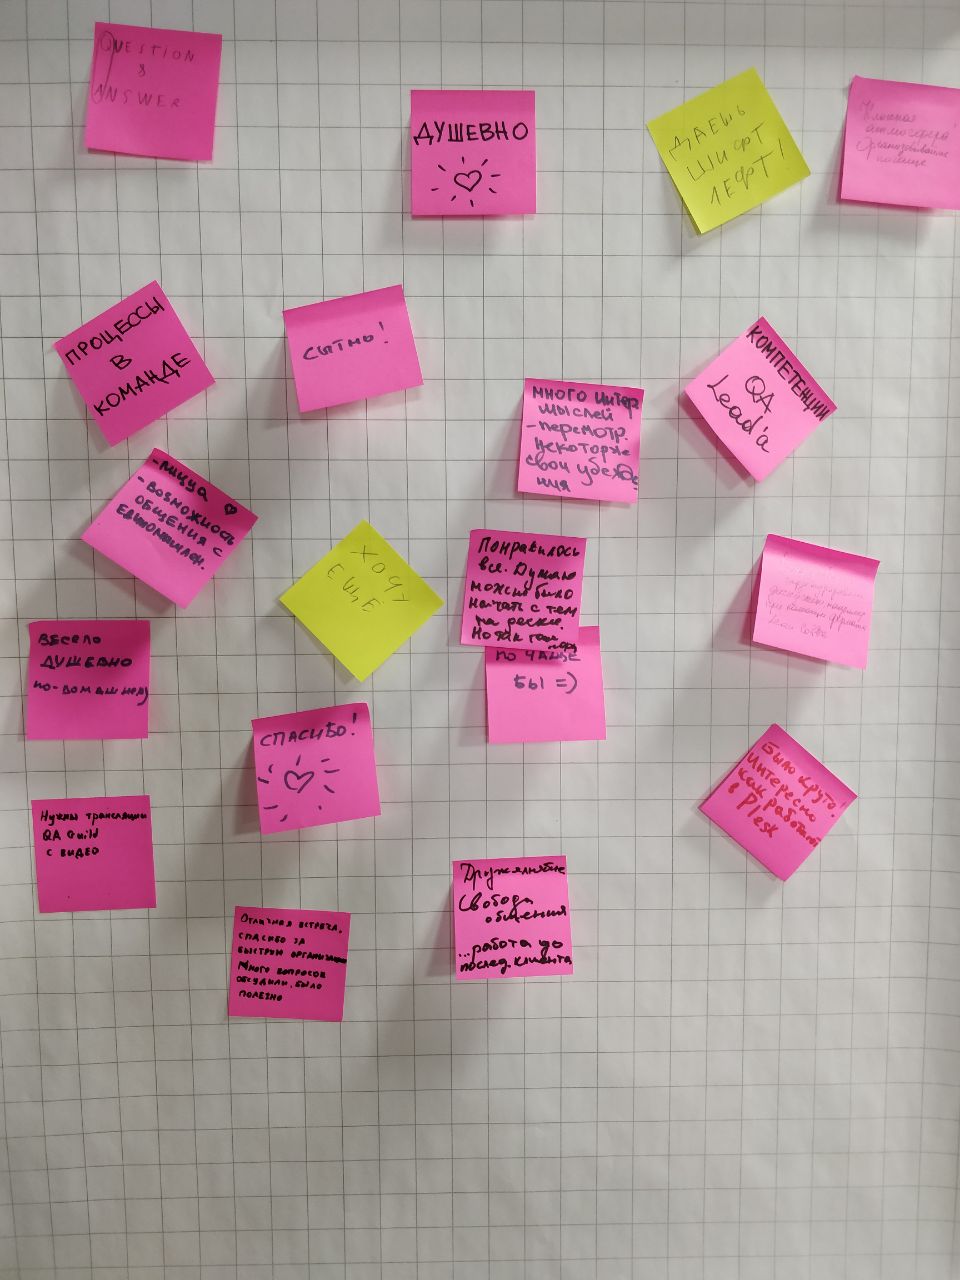 QUESTION
&
ANSWER
ДУШЕВНО
ДАЕШЬ
ШИФТ
ЛЕФТ!
атмосфера!
ПРОЦЕССЫ
В
КОМАНДЕ
СЫТНО!
МНОГО ИНТЕР
МЫСЛЕЙ
- пересмотр.
некоторые
свои убежде-
ния
КОМПЕТЕНЦИИ
QA
Lead'а
- пицца
- ВОЗМОЖНОСТЬ
ОБЩЕНИЯ С
ЕДИНОМЫШЛЕН.
ХОЧУ
ЕЩЁ
Понравилось
все. Думаю
можно было
начать с тем
на доске.
Но так тоже
ПО ЧАЩЕ
БЫ =)
ВЕСЕЛО
ДУШЕВНО
по-домашнему
СПАСИБО!
Было круто!
Интересно
как работают
в Plesk
Нужны трансляции
QA Guild
с видео
Дружелюбие
Свобода
общения
...работа до
послед. клиента
Отличная встреча,
спасибо за
быструю организацию
Много вопросов
обсудили, было
полезно